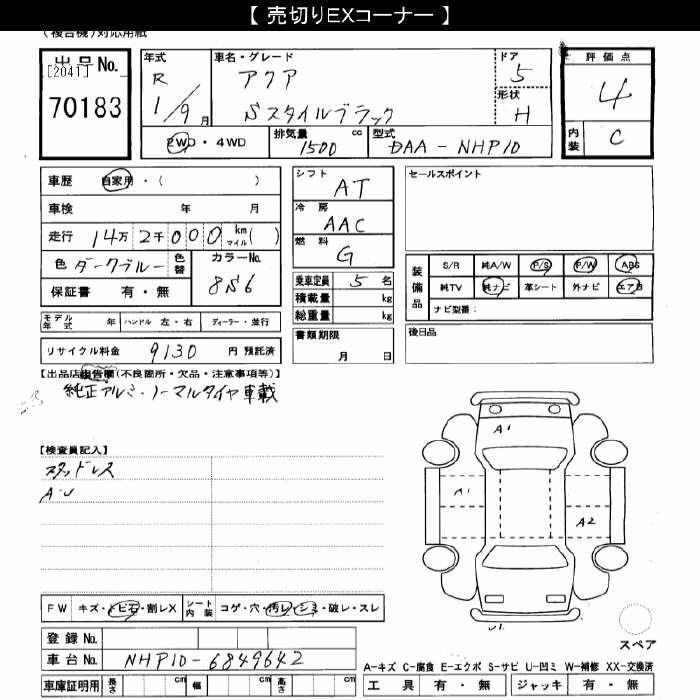 【 売切りEXコーナー 】
(複合機)対応用紙
出品No.
[2041]
70183
年式
R
1/9月
車名・グレード
アクア
Sスタイルブラック
ドア
5
形状
H
評価点
4
内装
C
2WD・4WD
排気量 cc
1500
型式
DAA-NHP10
車歴 自家用・( )
車検 年 月
走行 14万2千000 km マイル( )
色 ダークブルー 色替
カラーNo.
8S6
保証書 有・無
モデル年式 年 ハンドル 左・右 ディーラー・並行
リサイクル料金 9130 円 預託済
シフト
AT
冷房
AAC
燃料
G
乗車定員 5 名
積載量 kg
総重量 kg
書類期限
月 日
セールスポイント
装備品
S/R 純A/W P/S P/W ABS
純TV 純ナビ 革シート 外ナビ エアB
ナビ型番:
後日品
【出品店報告欄(不良箇所・欠品・注意事項等)】
純正アルミ・ノーマルタイヤ車載
【検査員記入】
スタッドレス
A・U
A1
A1
A2
U1
スペア
FW キズ・トビ石・割レX
シート内装 コゲ・穴・汚レ・シミ・破レ・スレ
登録No.
車台No. NHP10-6849642
車庫証明用 長さ cm 幅 cm 高さ cm
A-キズ C-腐食 E-エクボ S-サビ U-凹ミ W-補修 XX-交換済
工具 有・無 ジャッキ 有・無